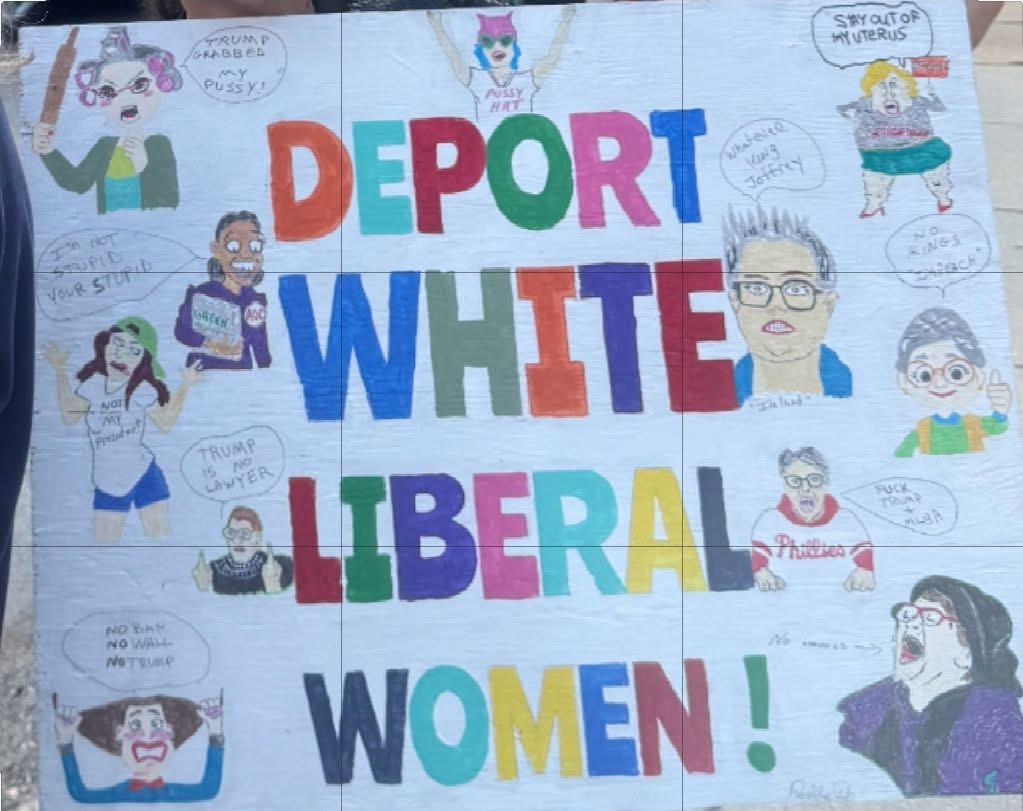 TRUMP
GRABBED
MY
PUSSY!
PUSSY
HAT
STAY OUT OF
MY UTERUS
DEPORT
WHATEVER
KING
JOFFREY
I'M NOT
STUPID
YOUR STUPID
GREEN
AOC
WHITE
NO
KINGS
"IMPEACH"
NOT
MY
President
TRUMP
IS NO
LAWYER
LIBERAL
FUCK
TRUMP
+
MLBA
Phillies
NO BAN
NO WALL
NO TRUMP
NO
WOMEN!